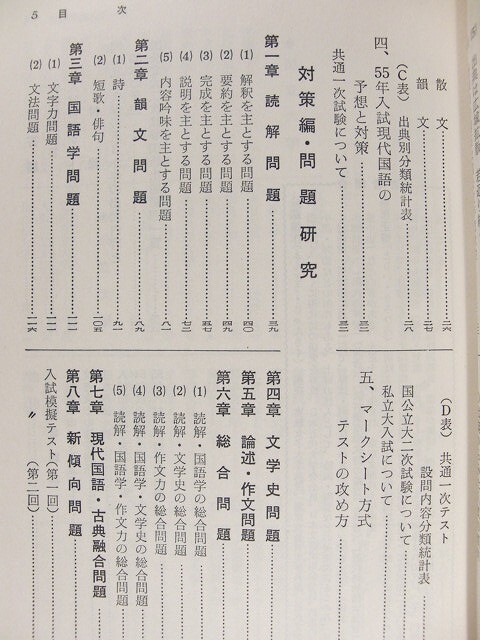 5 目次
散文……二六
韻文……二七
(C表) 出典別分類統計表……二八
四、55年入試現代国語の
予想と対策……三二
共通一次試験について……三二
対策編・問題研究
第一章 読解問題……三九
(1) 解釈を主とする問題……四〇
(2) 要約を主とする問題……四九
(3) 完成を主とする問題……五七
(4) 説明を主とする問題……七二
(5) 内容吟味を主とする問題……八一
第二章 韻文問題……八九
(1) 詩……九一
(2) 短歌・俳句……一〇五
第三章 国語学問題……一一一
(1) 文字力問題……一一一
(2) 文法問題……一一六
(D表) 共通一次テスト
設問内容分類統計表……
国公立大二次試験について……
私立大入試について……
五、マークシート方式
テストの攻め方
第四章 文学史問題……
第五章 論述・作文問題……
第六章 総合問題……
(1) 読解・国語学の総合問題
(2) 読解・文学史の総合問題
(3) 読解・作文力の総合問題
(4) 読解・国語学・文学史の総合問題
(5) 読解・国語学・作文力の総合問題
第七章 現代国語・古典融合問題
第八章 新傾向問題……
入試模擬テスト(第一回)……
〃 (第二回)……